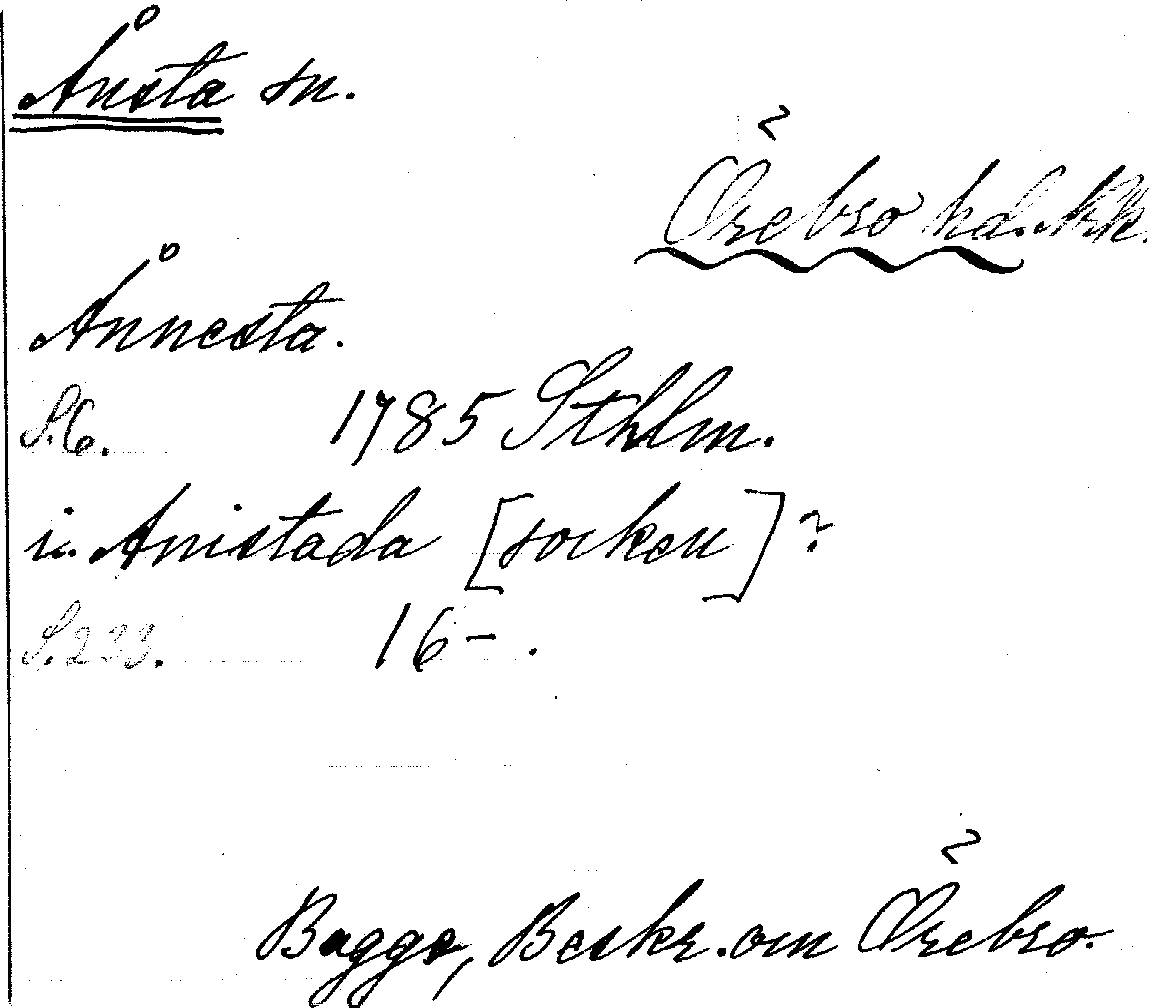 Ånsta sn.
Örebro hd. Nrk.
Ånnesta.
S.6. 1785 Sthlm.
i. Anistada [socken]?
S.233. 16-.
Bagge, Beskr. om Örebro.